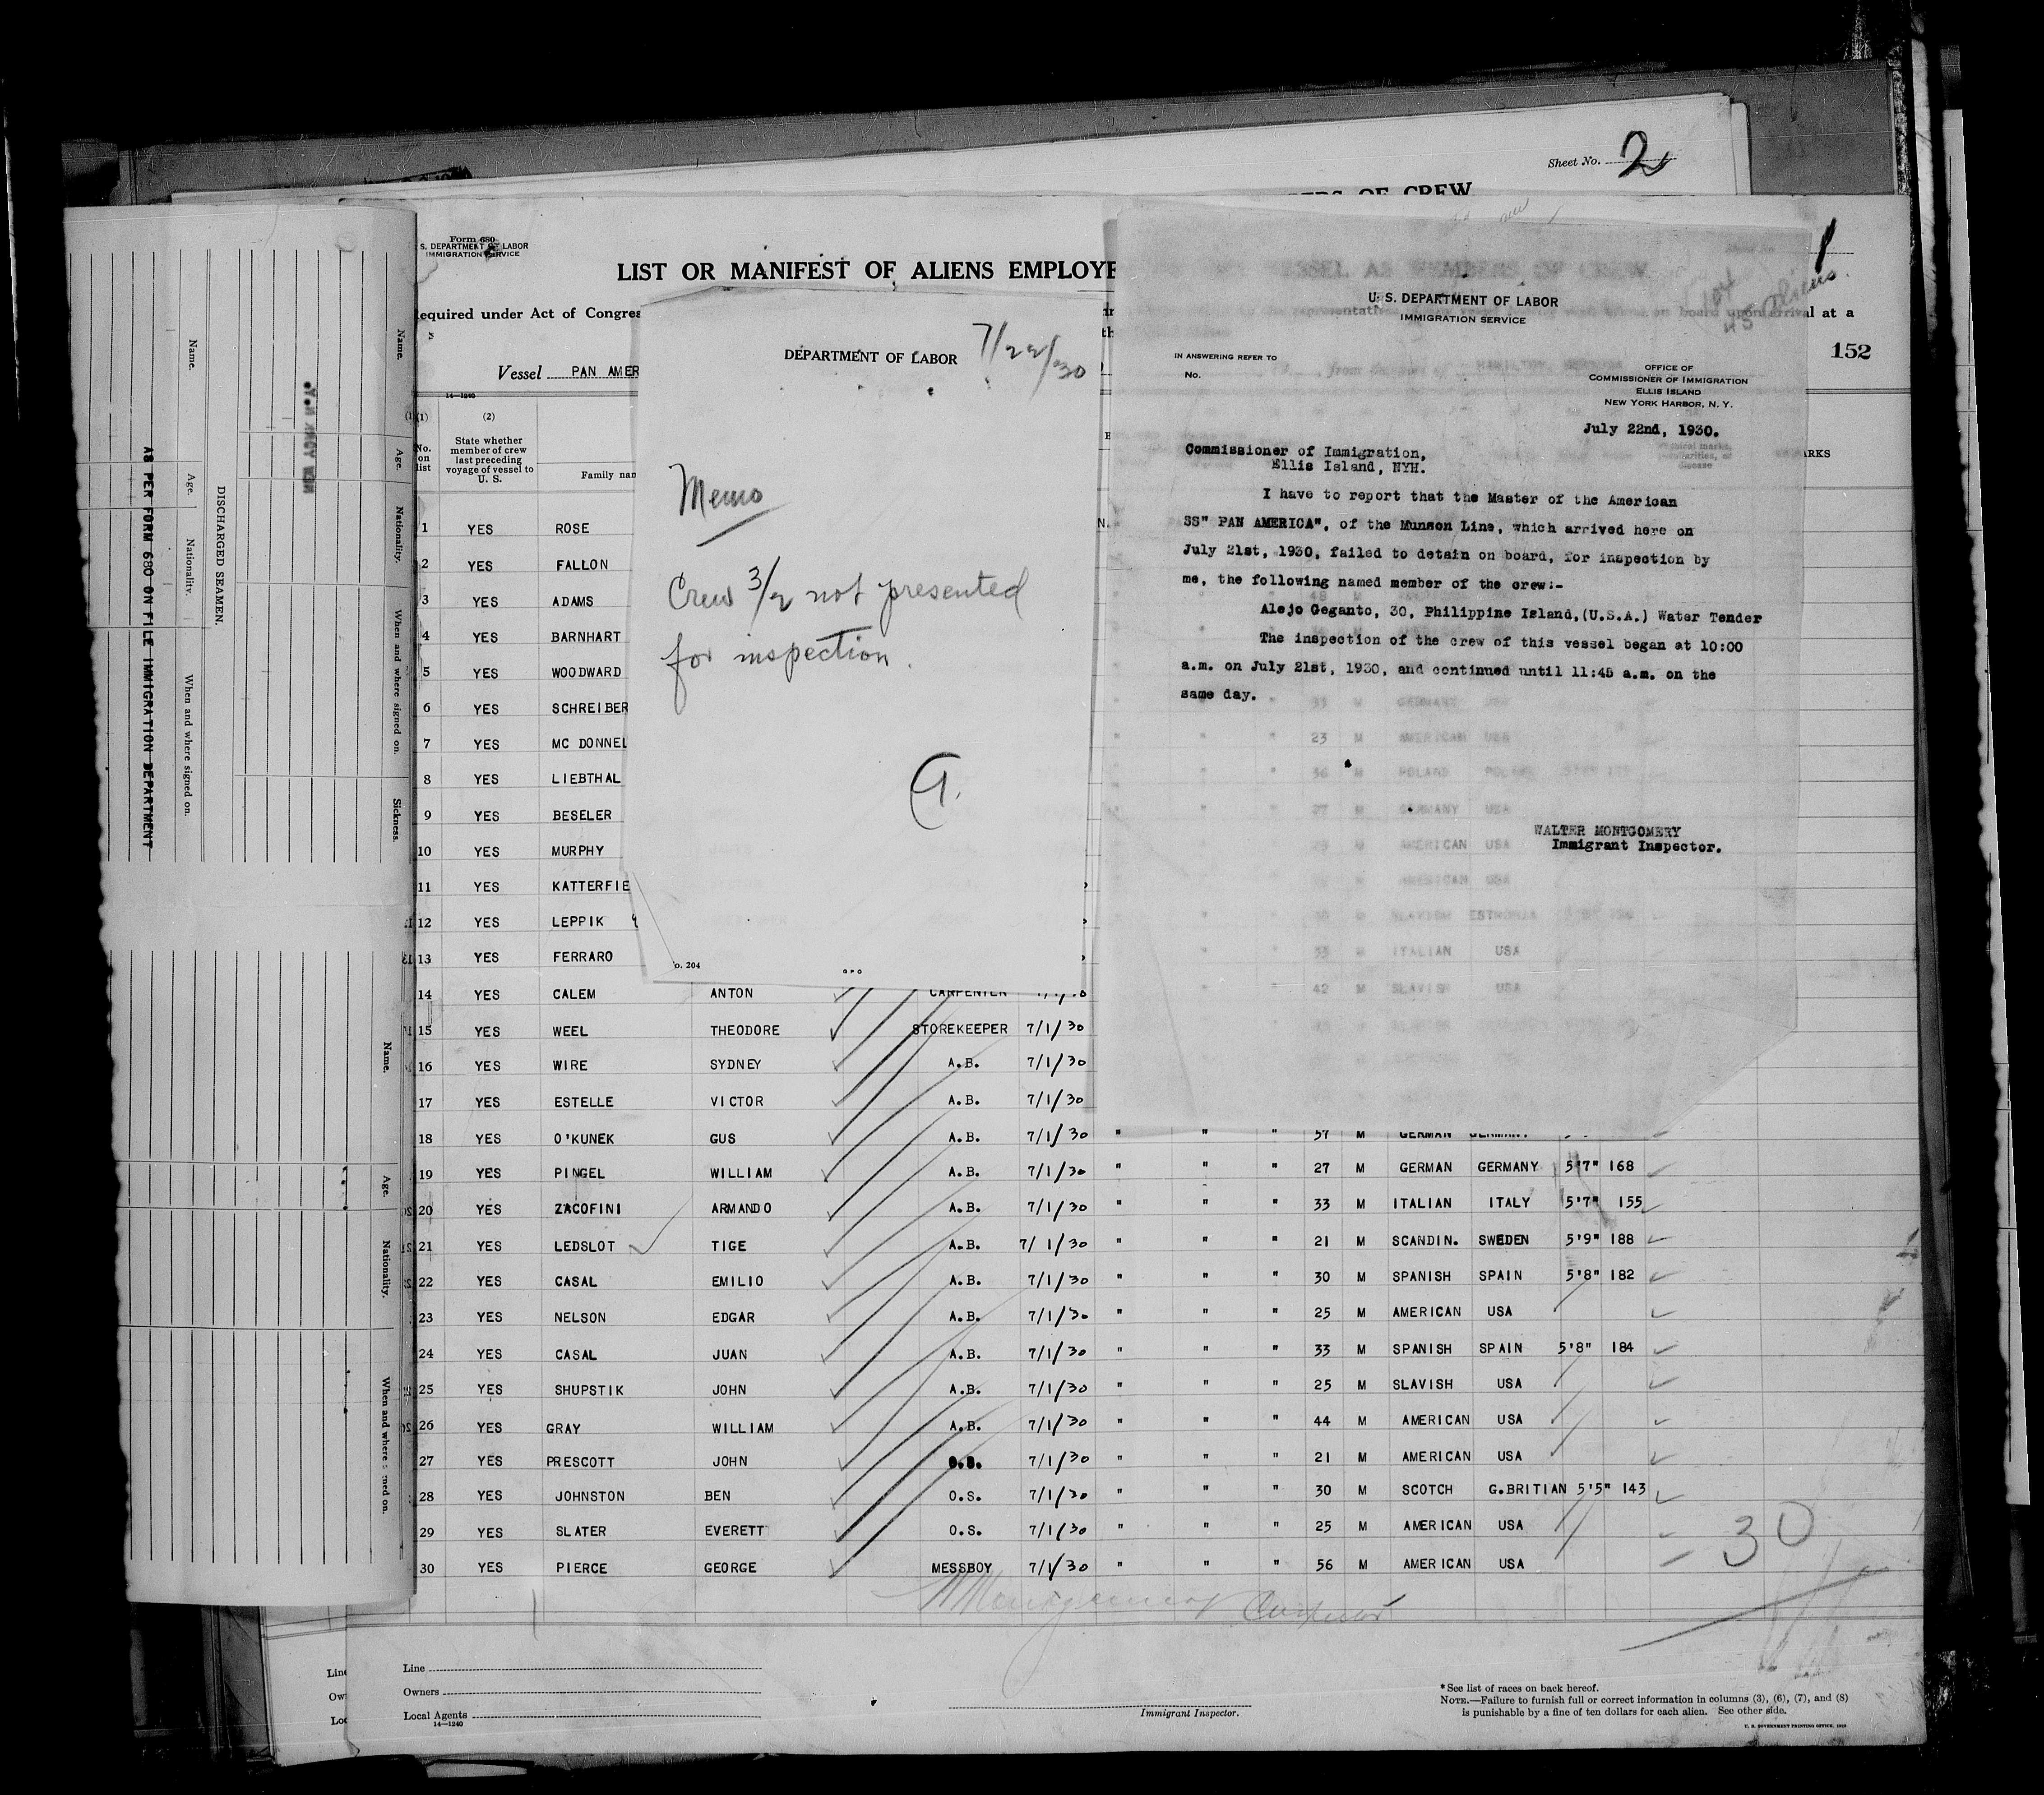 Sheet No. 2
OF CREW
Form 680
S. DEPARTMENT OF LABOR
IMMIGRATION SERVICE
LIST OR MANIFEST OF ALIENS EMPLOYE
VESSEL AS MEMBERS OF CREW
1
equired under Act of Congres
on board upon arrival at a
152
Vessel PAN AMER
14—1240
(1) (2)
No. on list
State whether member of crew last preceding voyage of vessel to U. S.
Family nan
RKS
DEPARTMENT OF LABOR
7/22/30
Memo
Crew 3/2 not presented
for inspection.
o. 204
GPO
U. S. DEPARTMENT OF LABOR
IMMIGRATION SERVICE
45 aliens
IN ANSWERING REFER TO
No.
OFFICE OF
COMMISSIONER OF IMMIGRATION
ELLIS ISLAND
NEW YORK HARBOR, N. Y.
July 22nd, 1930.
Commissioner of Immigration,
Ellis Island, NYH.
I have to report that the Master of the American
SS" PAN AMERICA", of the Munson Line, which arrived here on
July 21st, 1930, failed to detain on board, for inspection by
me, the following named member of the crew:-
Alejo Geganto, 30, Philippine Island,(U.S.A.) Water Tender
The inspection of the crew of this vessel began at 10:00
a.m. on July 21st, 1930, and continued until 11:45 a.m. on the
same day.
WALTER MONTGOMERY
Immigrant Inspector.
1 YES ROSE
2 YES FALLON
3 YES ADAMS
4 YES BARNHART
5 YES WOODWARD
6 YES SCHREIBER
7 YES MC DONNEL
8 YES LIEBTHAL
9 YES BESELER
10 YES MURPHY
11 YES KATTERFIE
12 YES LEPPIK
13 YES FERRARO
14 YES CALEM ANTON CARPENTER
15 YES WEEL THEODORE STOREKEEPER 7/1/30
16 YES WIRE SYDNEY A.B. 7/1/30
17 YES ESTELLE VICTOR A.B. 7/1/30
18 YES O'KUNEK GUS A.B. 7/1/30 " " " 57 M GERMAN GERMANY
19 YES PINGEL WILLIAM A.B. 7/1/30 " " " 27 M GERMAN GERMANY 5'7" 168
20 YES ZACOFINI ARMANDO A.B. 7/1/30 " " " 33 M ITALIAN ITALY 5'7" 155
21 YES LEDSLOT TIGE A.B. 7/1/30 " " " 21 M SCANDIN. SWEDEN 5'9" 188
22 YES CASAL EMILIO A.B. 7/1/30 " " " 30 M SPANISH SPAIN 5'8" 182
23 YES NELSON EDGAR A.B. 7/1/30 " " " 25 M AMERICAN USA
24 YES CASAL JUAN A.B. 7/1/30 " " " 33 M SPANISH SPAIN 5'8" 184
25 YES SHUPSTIK JOHN A.B. 7/1/30 " " " 25 M SLAVISH USA
26 YES GRAY WILLIAM A.B. 7/1/30 " " " 44 M AMERICAN USA
27 YES PRESCOTT JOHN 7/1/30 " " " 21 M AMERICAN USA
28 YES JOHNSTON BEN O.S. 7/1/30 " " " 30 M SCOTCH G.BRITIAN 5'5" 143
29 YES SLATER EVERETT O.S. 7/1/30 " " " 25 M AMERICAN USA
30 YES PIERCE GEORGE MESSBOY 7/1/30 " " " 56 M AMERICAN USA
30
Line
Owners
Local Agents
14—1240
Immigrant Inspector.
*See list of races on back hereof.
NOTE.—Failure to furnish full or correct information in columns (3), (6), (7), and (8)
is punishable by a fine of ten dollars for each alien. See other side.
U. S. GOVERNMENT PRINTING OFFICE
AS PER FORM 680 ON FILE IMMIGRATION DEPARTMENT
DISCHARGED SEAMEN.
Name. Age. Nationality. When and where signed on.
Name. Age. Nationality. When and where signed on. Sickness.
NEW YORK
Name. Age. Nationality. When and where